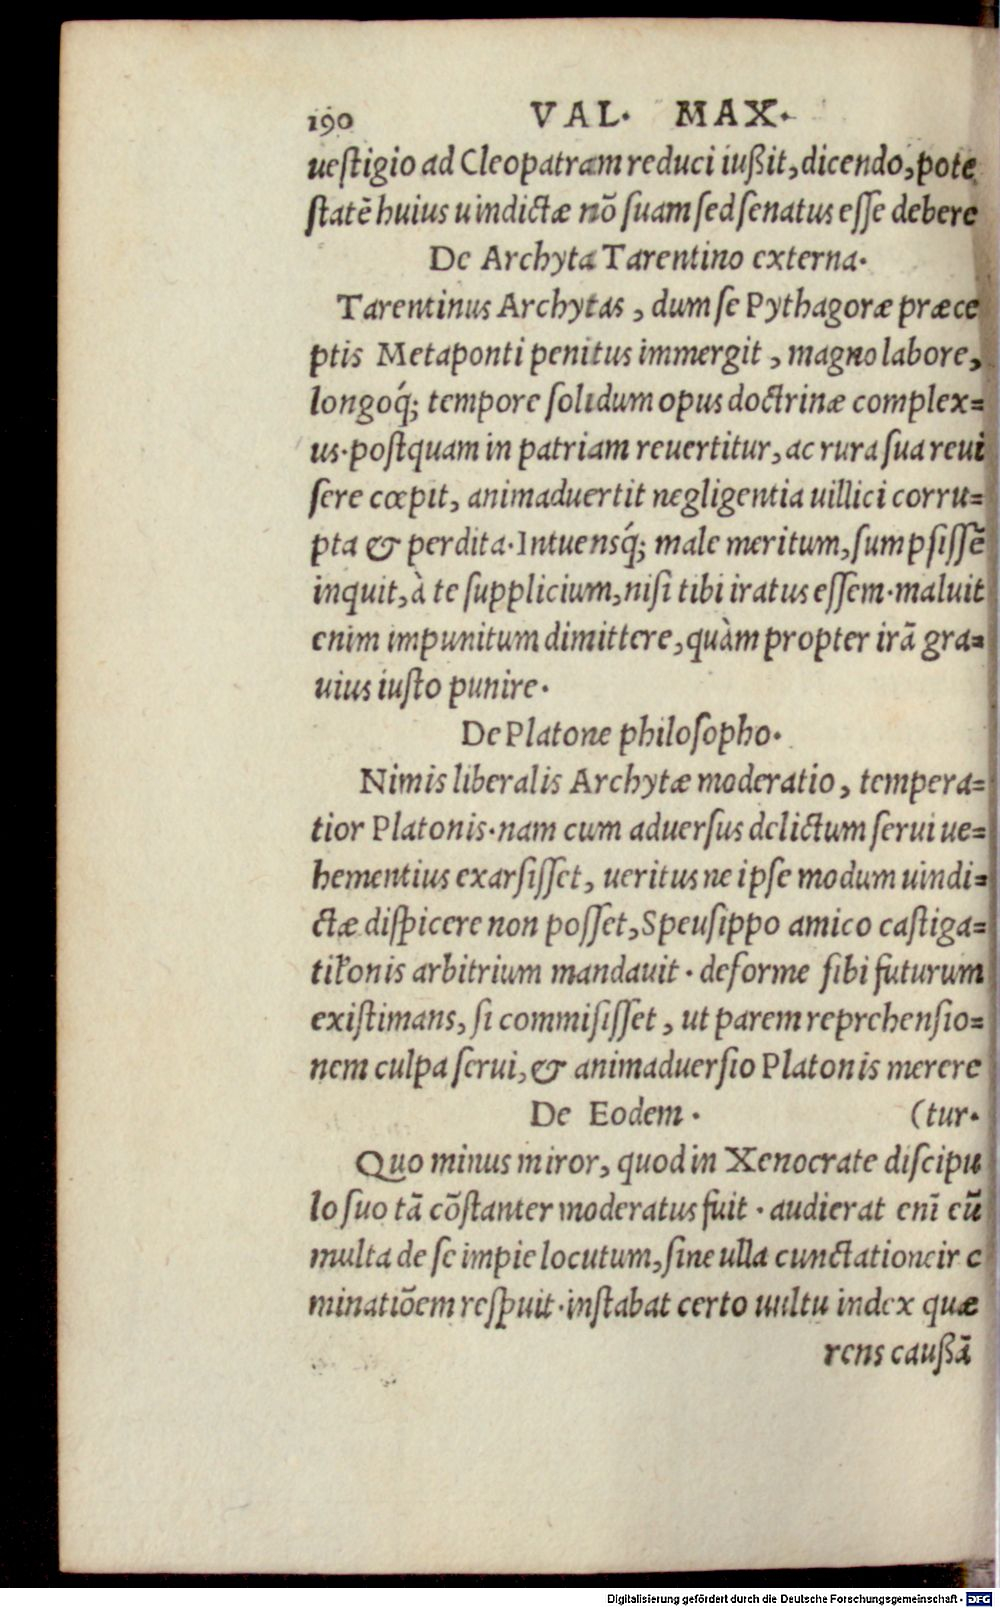 190 VAL. MAX.
ueſtigio ad Cleopatram reduci iußit, dicendo, pote
ſtatē huius uindictæ nō ſuam ſed ſenatus eſſe debere
De Archyta Tarentino externa.
Tarentinus Archytas, dum ſe Pythagoræ præce
ptis Metaponti penitus immergit, magno labore,
longoq́; tempore ſolidum opus doctrinæ complex=
us. poſtquam in patriam reuertitur, ac rura ſua reui
ſere cœpit, animaduertit negligentia uillici corru=
pta & perdita. Intuensq́; male meritum, ſumpſiſſē
inquit, à te ſupplicium, niſi tibi iratus eſſem. maluit
enim impunitum dimittere, quàm propter irā gra=
uius iuſto punire.
De Platone philoſopho.
Nimis liberalis Archytæ moderatio, tempera=
tior Platonis. nam cum aduerſus delictum ſerui ue=
hementius exarſiſſet, ueritus ne ipſe modum uindi=
ctæ diſpicere non poſſet, Speuſippo amico caſtiga=
onis arbitrium mandauit. deforme ſibi futurum
exiſtimans, ſi commiſiſſet, ut parem reprehenſio=
nem culpa ſerui, & animaduerſio Platonis merere
De Eodem. (tur.
Quo minus miror, quod in Xenocrate diſcipu
lo ſuo tā cōſtanter moderatus fuit. audierat enī eū
multa de ſe impie locutum, ſine ulla cunctatione ir c
minatiōem reſpuit. inſtabat certo uultu index quæ
rens cauſſā
Digitalisierung gefördert durch die Deutsche Forschungsgemeinschaft - DFG